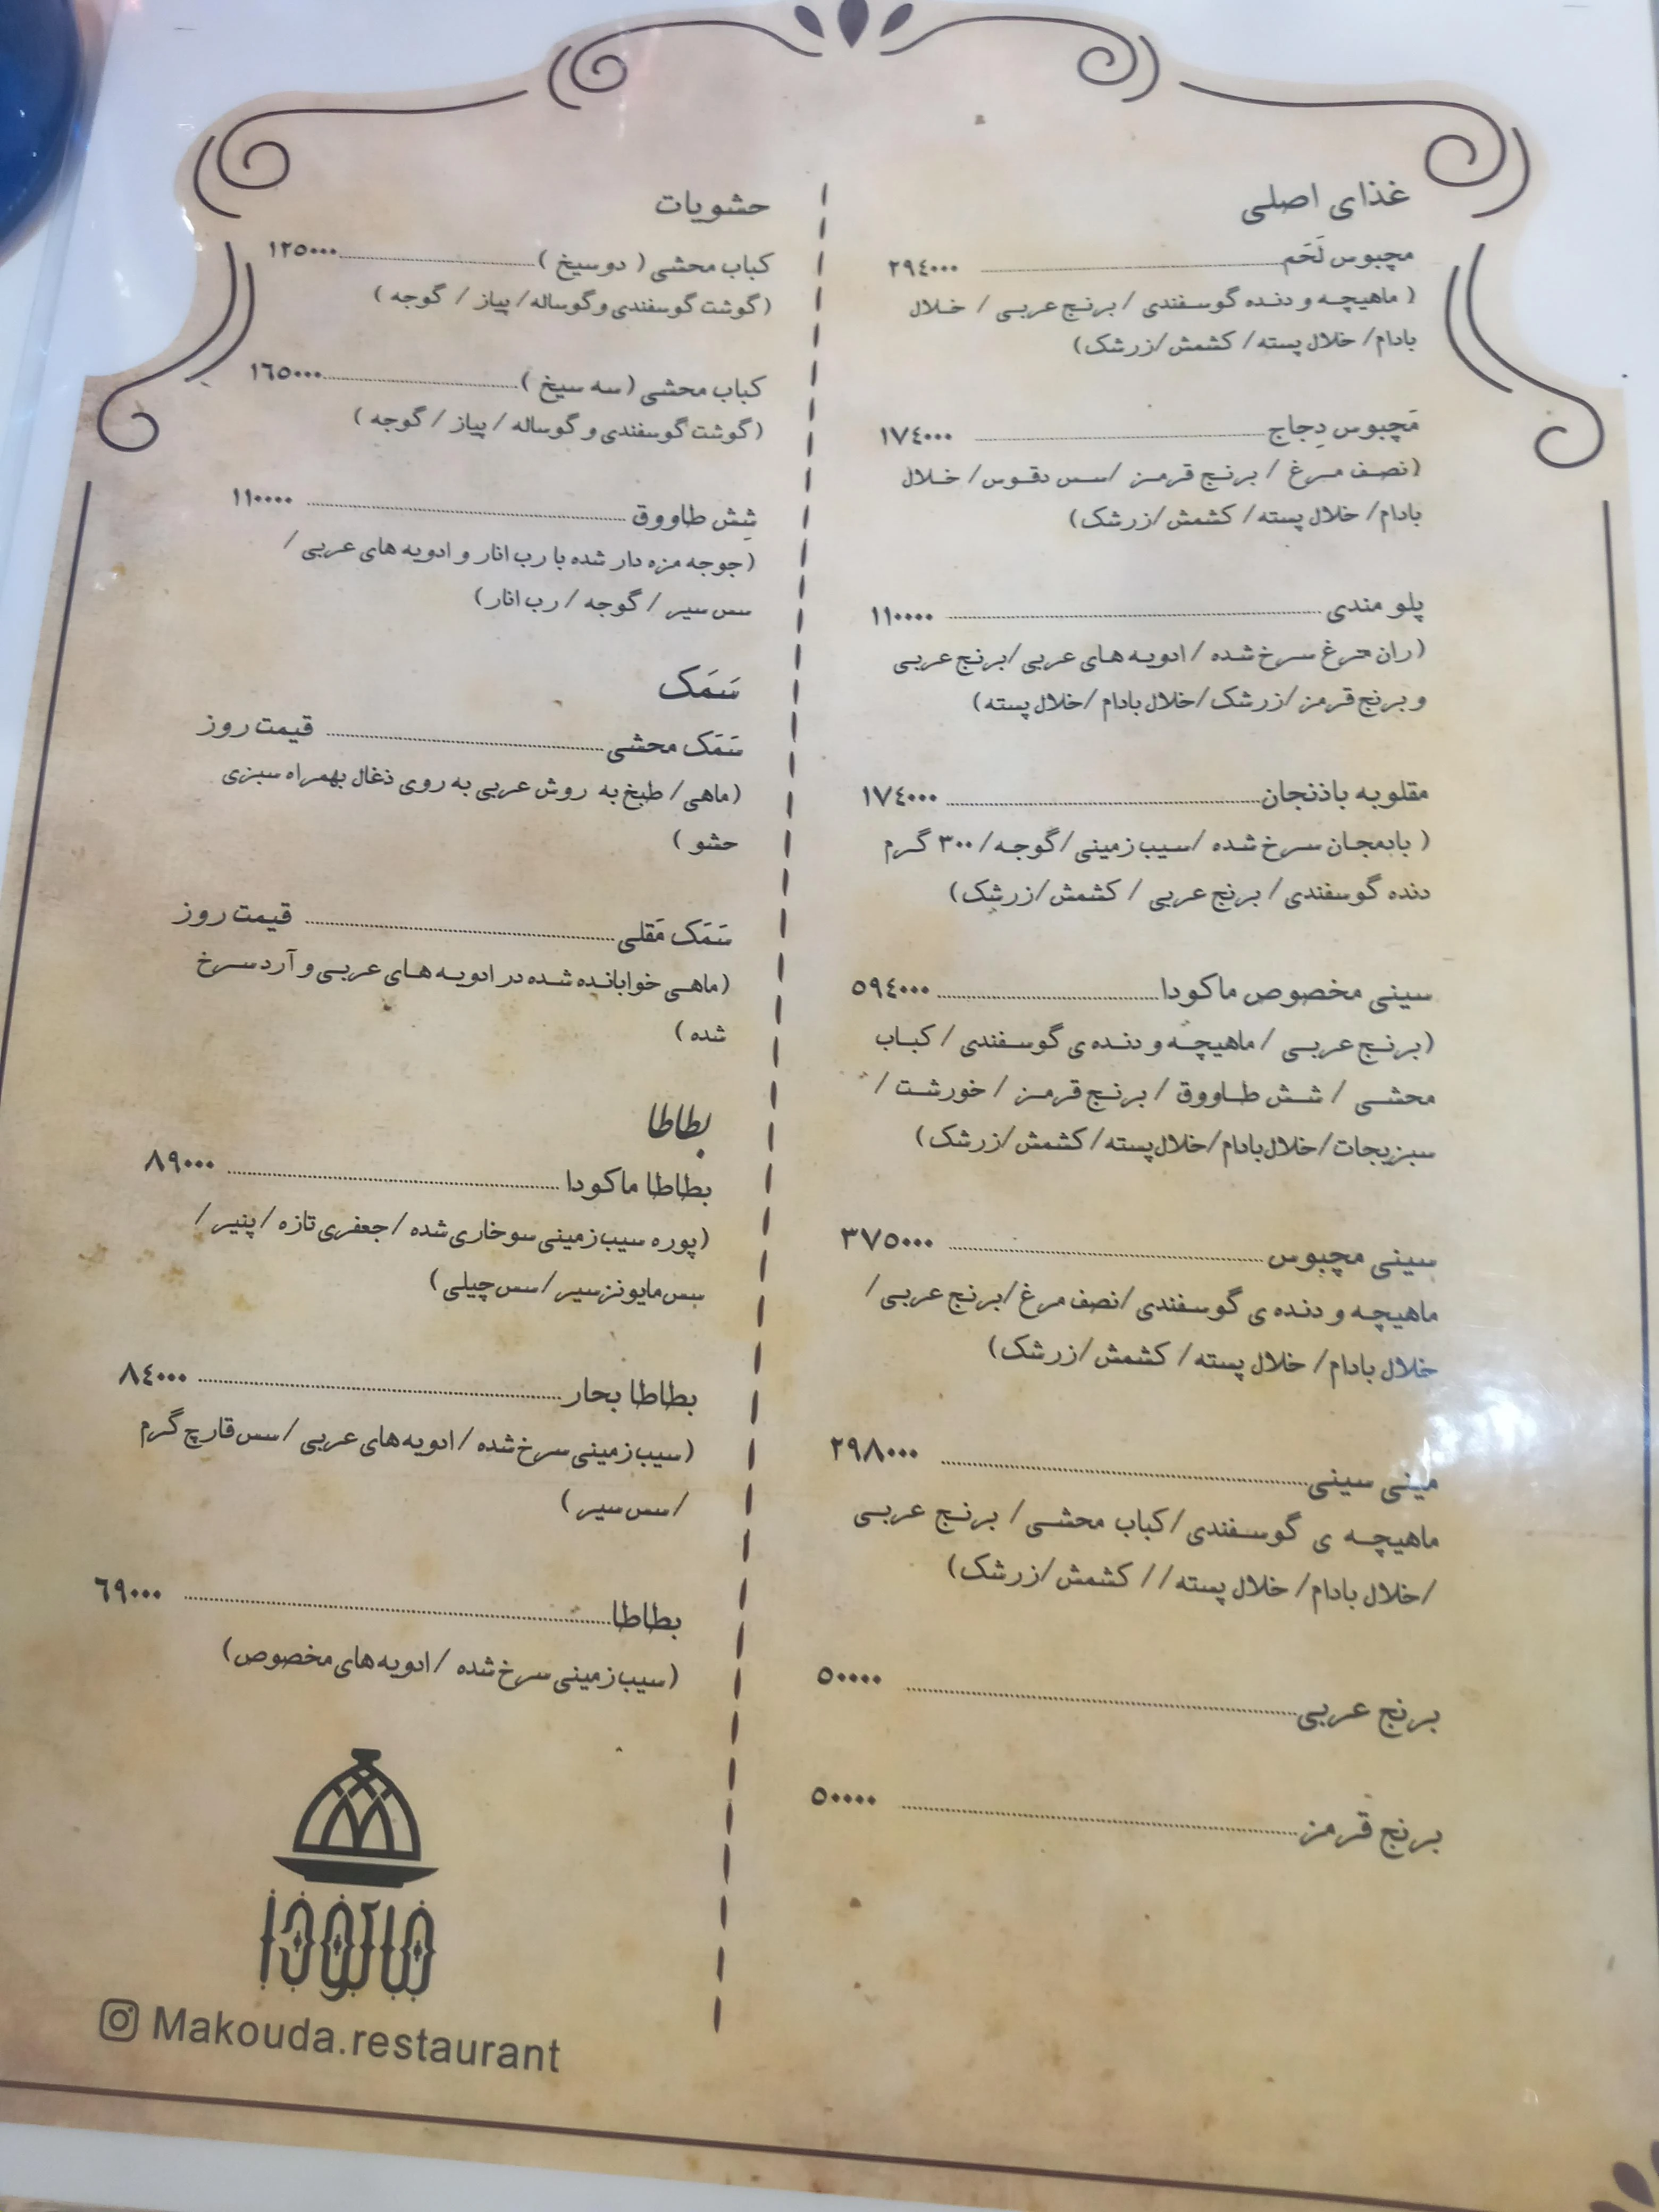 غذای اصلی
مچبوس لَحَم ۲۹٤۰۰۰
( ماهیچه و دنده گوسفندی / برنج عربی / خلال
بادام/ خلال پسته/ کشمش/زرشک)
مَچبوس دِجاج ۱۷٤۰۰۰
(نصف مرغ / برنج قرمز /سس دقوس/ خلال
بادام/ خلال پسته/ کشمش/زرشک)
پلو مندی ۱۱۰۰۰۰
(ران مرغ سرخ شده /ادویه های عربی/برنج عربی
و برنج قرمز/زرشک/خلال بادام /خلال پسته)
مقلوبه باذنجان ۱۷٤۰۰۰
( بادمجان سرخ شده /سیب زمینی/گوجه/۳۰۰ گرم
دنده گوسفندی/ برنج عربی / کشمش/زرشک)
سینی مخصوص ماکودا ۵۹٤۰۰۰
(برنج عربی /ماهیچه و دنده ی گوسفندی /کباب
محشی / شش طاووق / برنج قرمز / خورشت /
سبزیجات/خلال بادام/خلال پسته/کشمش/زرشک)
سینی مچبوس ۳۷۵۰۰۰
ماهیچه و دنده ی گوسفندی/نصف مرغ/برنج عربی/
خلال بادام/ خلال پسته/ کشمش/زرشک)
مینی سینی ۲۹۸۰۰۰
ماهیچه ی گوسفندی/کباب محشی/ برنج عربی
/خلال بادام/ خلال پسته// کشمش/زرشک)
برنج عربی ۵۰۰۰۰
برنج قرمز ۵۰۰۰۰
حشویات
کباب محشی ( دو سیخ ) ۱۲۵۰۰۰
(گوشت گوسفندی و گوساله/ پیاز / گوجه )
کباب محشی (سه سیخ ) ۱٦۵۰۰۰
(گوشت گوسفندی و گوساله / پیاز / گوجه )
شِش طاووق ۱۱۰۰۰۰
(جوجه مزه دار شده با رب انار و ادویه های عربی /
سس سیر / گوجه / رب انار)
سَمَک
سَمَک محشی قیمت روز
(ماهی/ طبخ به روش عربی به روی ذغال بهمراه سبزی
حشو )
سَمَک مَقلی قیمت روز
(ماهی خوابانده شده در ادویه های عربی و آرد سرخ
شده )
بطاطا
بطاطا ماکودا ۸۹۰۰۰
(پوره سیب زمینی سوخاری شده /جعفری تازه /پنیر /
سس مایونز سیر /سس چیلی)
بطاطا بحار ۸٤۰۰۰
(سیب زمینی سرخ شده /ادویه های عربی /سس قارچ گرم
/سس سیر )
بطاطا ٦۹۰۰۰
(سیب زمینی سرخ شده /ادویه های مخصوص)
ماکودا
Makouda.restaurant